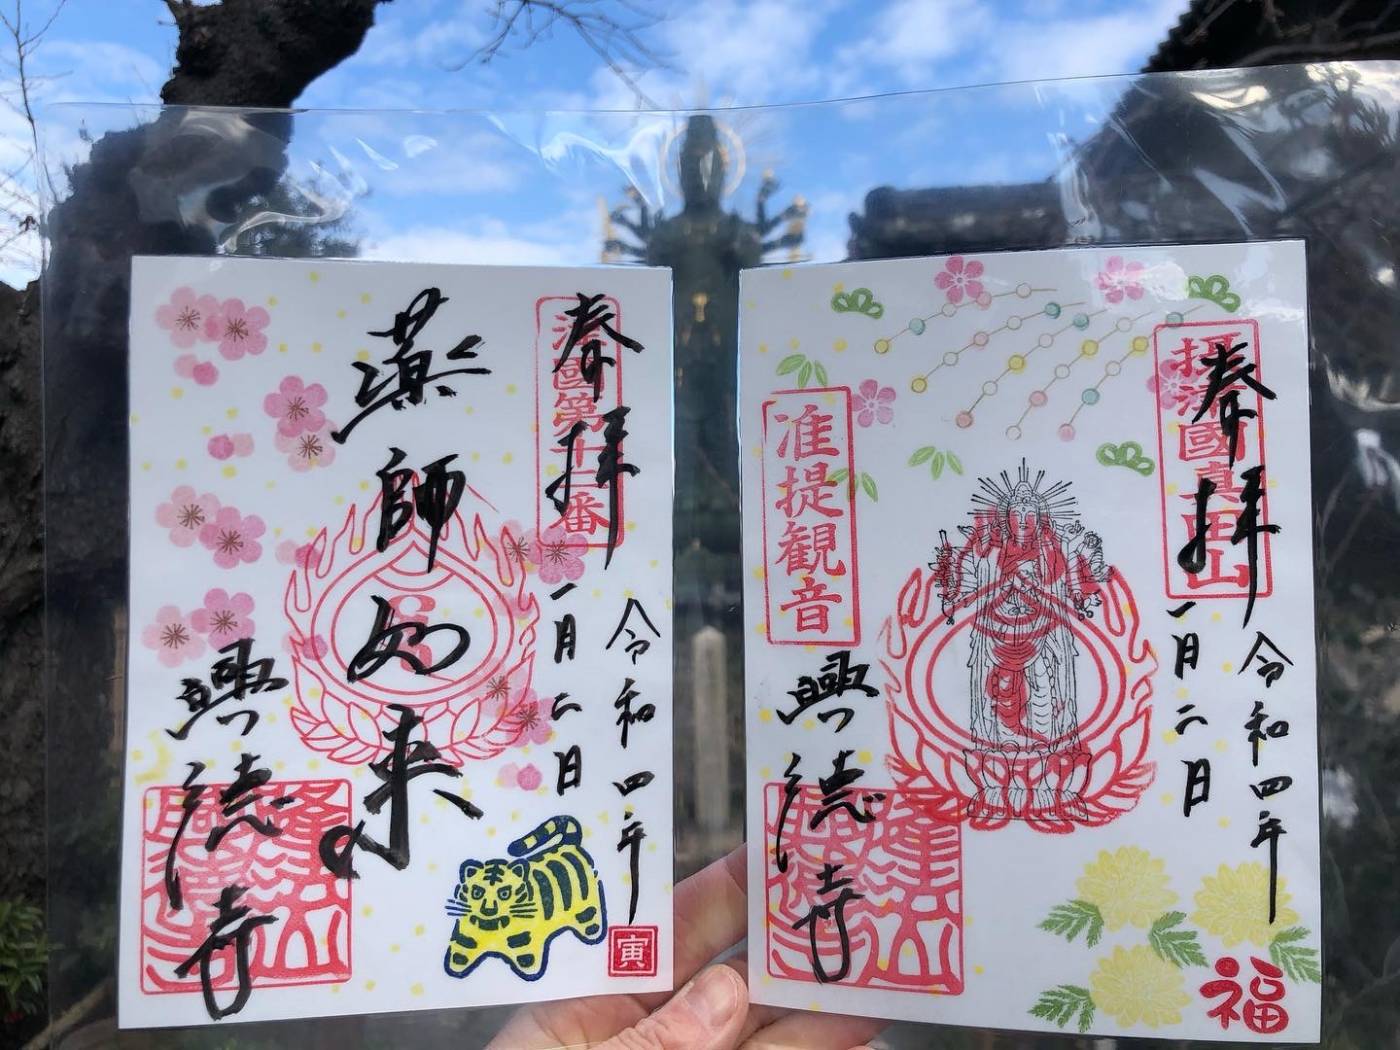 奉拝
令和四年
一月二日
薬師如来
興徳寺
寅
奉拝
摂津國真田山
令和四年
一月二日
准提観音
興徳寺
福